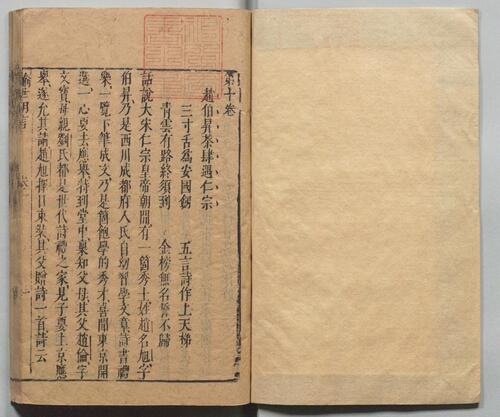 第十卷
趙伯昇茶肆遇仁宗
三寸舌爲安國劍　五言詩作上天梯
青雲有路終須到　金榜無名誓不歸
話說大宋仁宗皇帝朝間有一箇秀士姓趙名旭字
伯昇乃是西川成都府人氏自幼習學文章詩書禮
樂一覽下筆成文乃是簡飽學的秀才喜聞東京開
選一心要去應舉特到堂中稟知父母其父趙倫字
文寶母親劉氏都是世代詩禮之家見子要上京應
舉遂允其請趙旭擇日束裝其父贈詩一首詩云
喻世明言